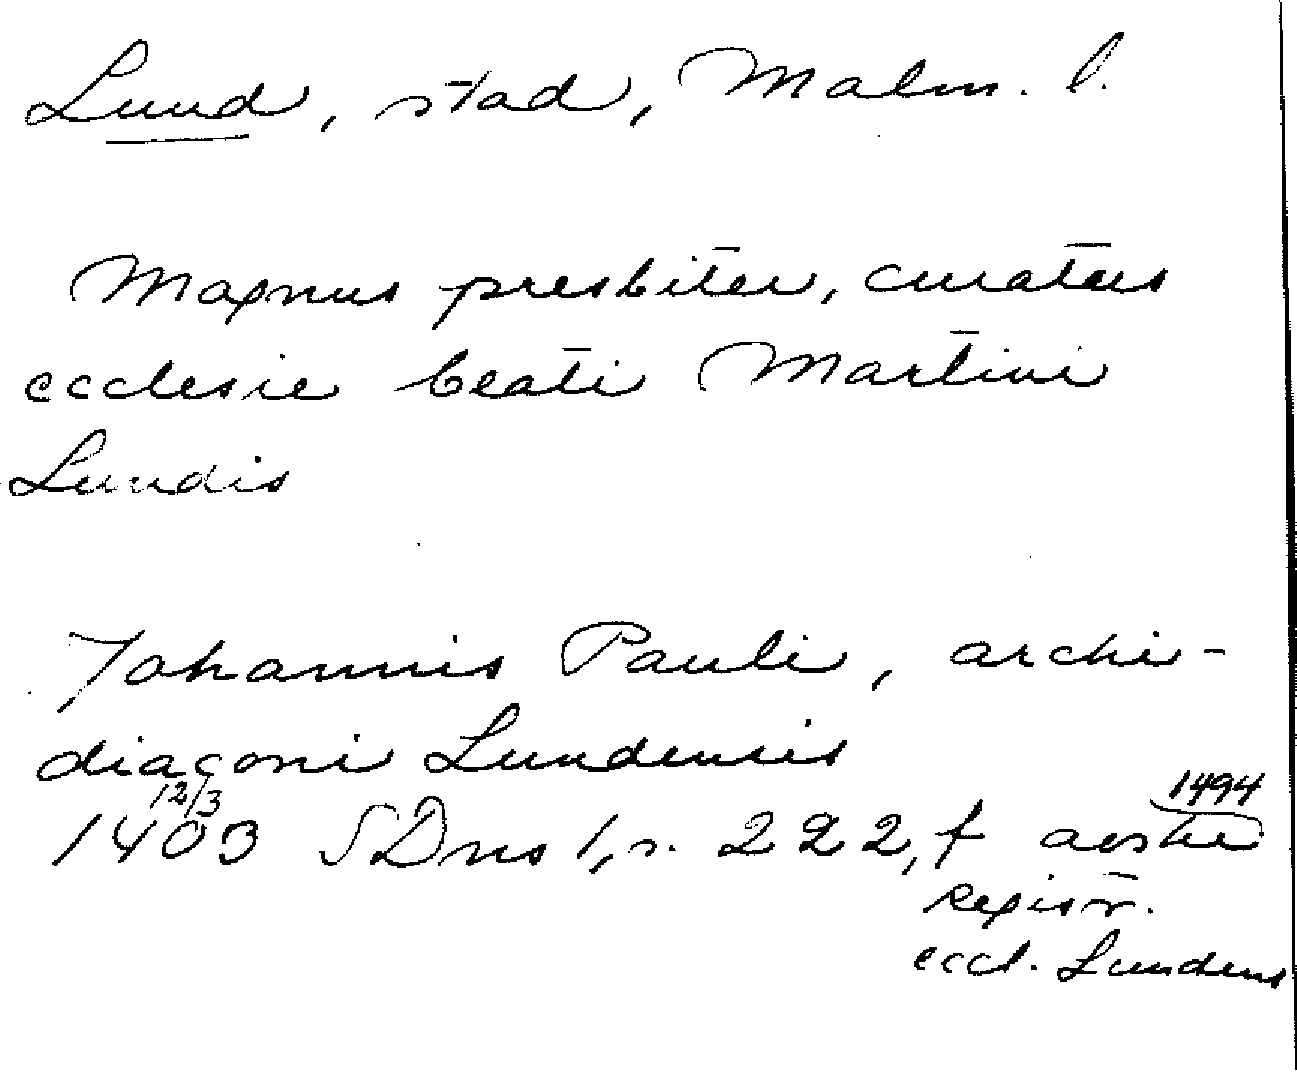 Lund, stad, Malm. l.
Magnus presbiter, curatus
ecclesie beati Martini
Lundis
Johannis Pauli, archi-
diaconi Lundensis
12/3 1494
1403 SDns 1, s. 222, f
registr.
eccl. Lundens